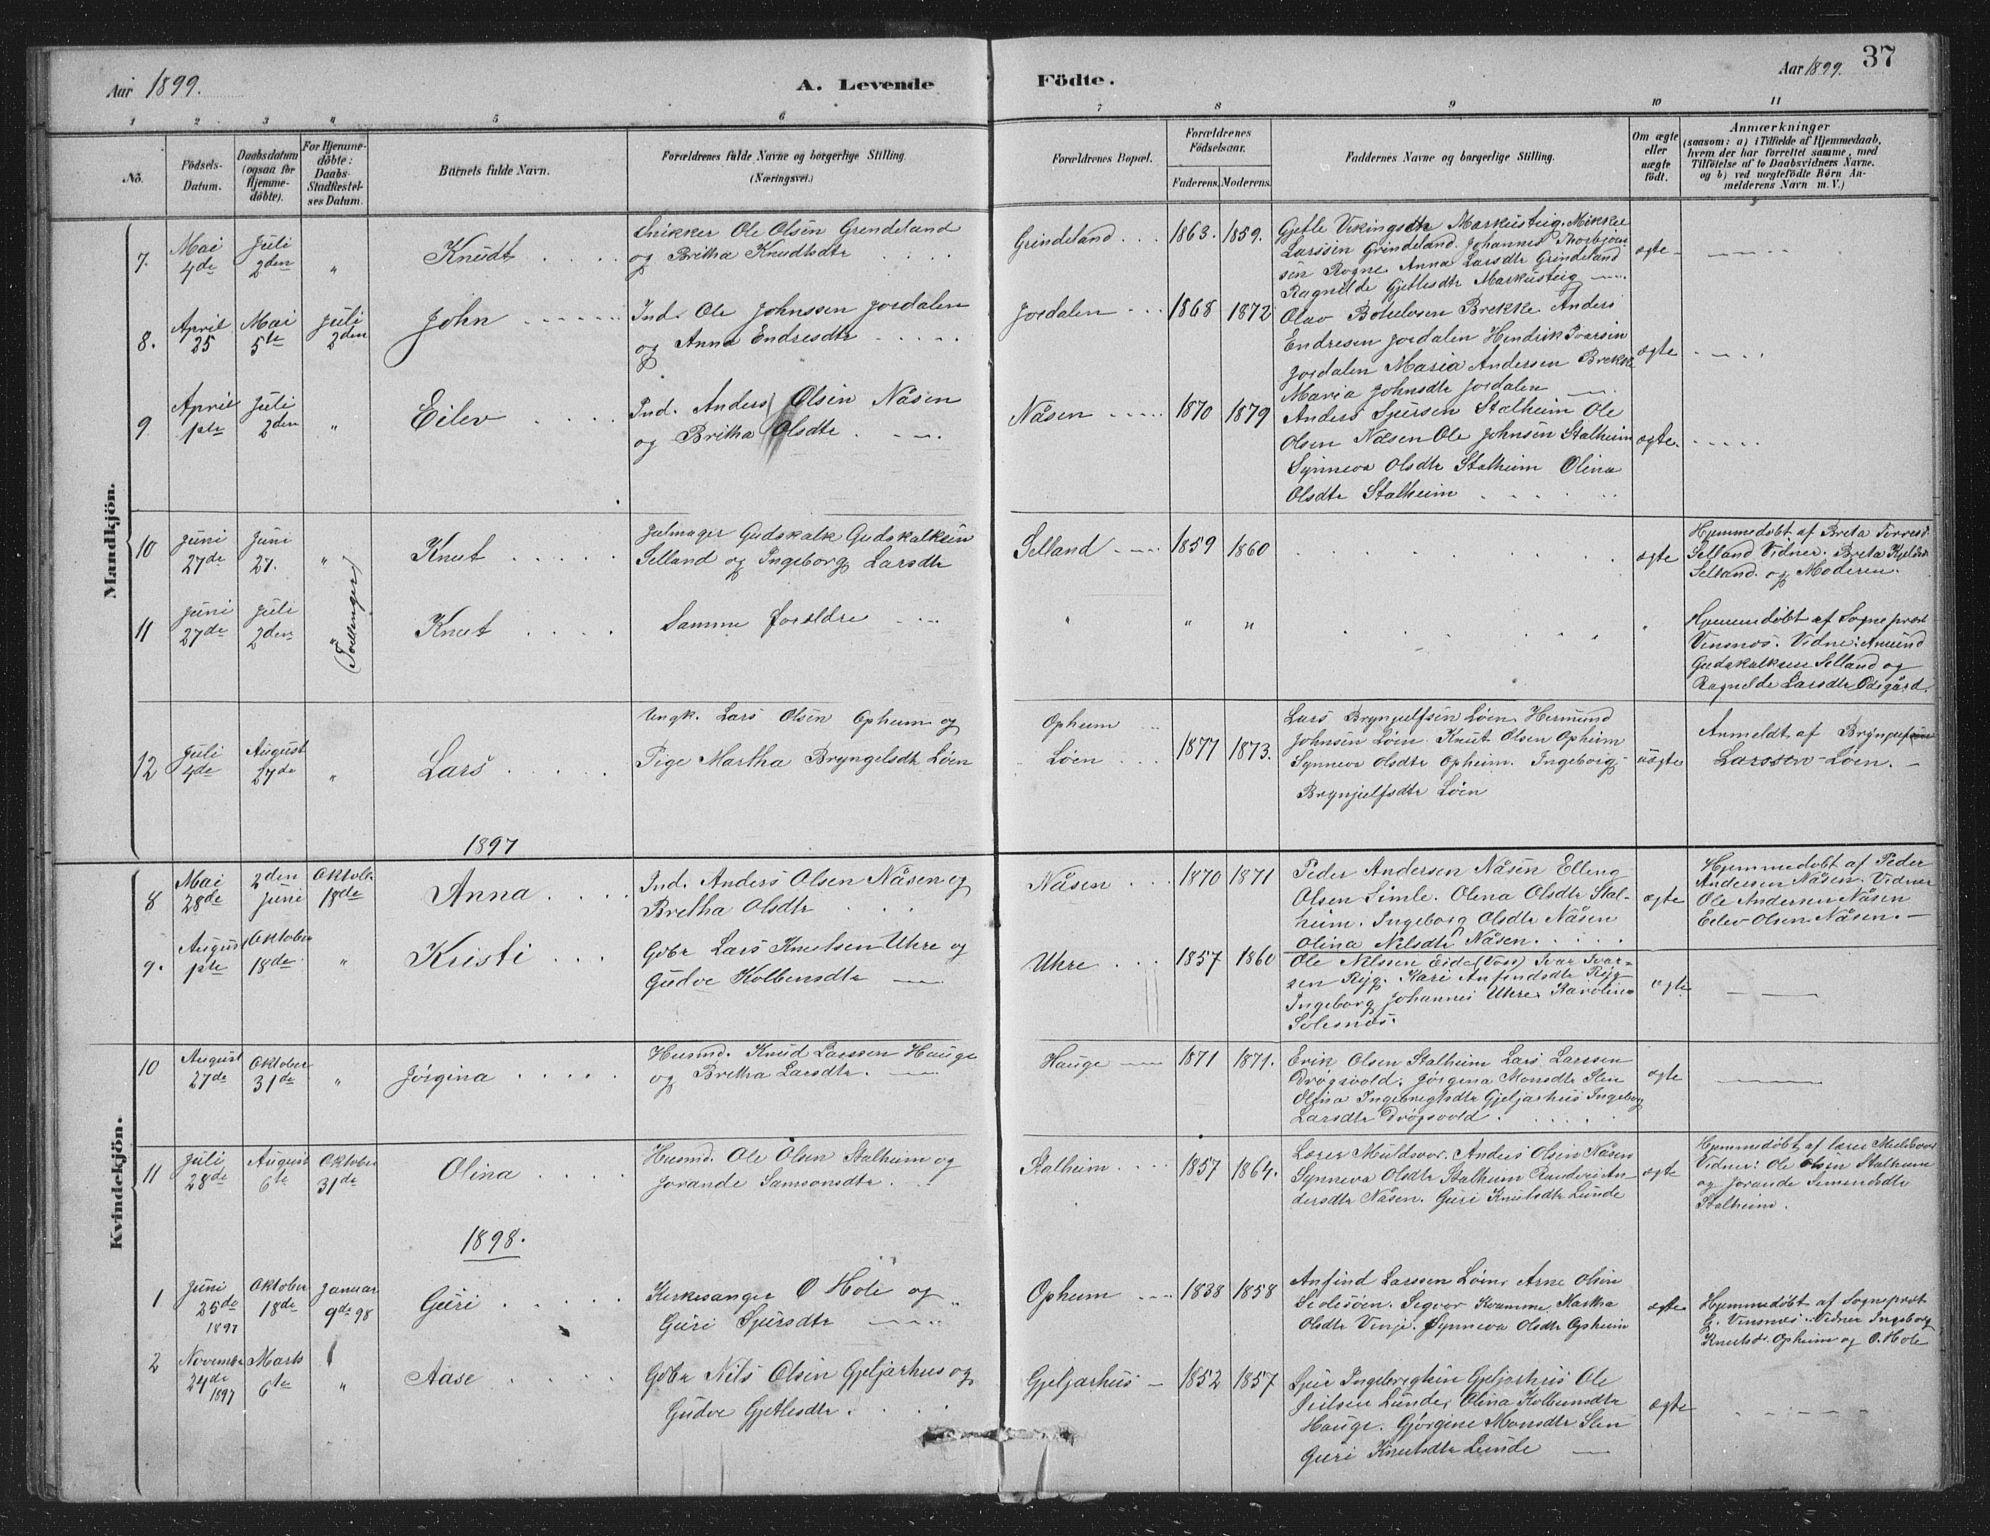 Aar 1899.
A. Levende
Födte.
Aar 1899.
37
1 2 3 4 5 6 7 8 9 10 11
No.
Födsels-
Datum.
Daabsdatum
(ogsaa for
Hjemme-
döbte).
For Hjemme-
döbte:
Daabs-
Stadfæstel-
ses Datum.
Barnets fulde Navn.
Forældrenes fulde Navne og borgerlige Stilling.
(Næringsvei.)
Forældrenes Bopæl.
Forældrenes
Födselsaar.
Faderens. Moderens.
Faddernes Navne og borgerlige Stilling.
Om ægte
eller
uægte
födt.
Anmærkninger
(saasom: a) i Tilfælde af Hjemmedaab,
hvem der har forrettet samme, med
Tilföielse af to Daabsvidners Navne.
og b) ved uægtefödte Börn An-
melderens Navn m. V.)
Mandkjön.
7. Mai 4de Juli 2den " Knudt
Snikker Ole Olsen Grindeland
og Britha Knudtsdtr
Grindeland 1863. 1859.
Gjetle Vikingsdtr Markusteig. Mikkel
Larssen Grindeland. Johannes Thorbjörn-
sen Rogne Anna Larsdtr Grindeland
Ragnilde Gjetlesdtr Markusteig
ægte
8. April 25 Mai 5te Juli 2den John
Ind. Ole Johnssen Jordalen
og Anna Endresdtr
Jordalen 1868 1872
Olav Botulvsen Brekke Anders
Endresen Jordalen Hendrik Ivarsen
Jordalen Maria Andersen Brekke
Maria Johnsdtr Jordalen
ægte
9 April 1ste Juli 2den " Eilev
Ind. Anders Olsen Nåsen
og Britha Olsdtr
Nåsen 1870 1879
Anders Sjursen Stalheim Ole
Olsen Nåsen Ole Johnsen Stalheim
Synneva Olsdtr Stalheim Olina
Olsdtr Stalheim
ægte.
10 Juni 27de Juni 27. " Knut
Gudskalk Gudskalksen
Selland og Ingeborg Larsdtr
Selland 1859 1860
ægte
Hjemmedøbt af Breta
Selland Vidner: Breta
Selland og Moderen.
(Tvillinger)
11 Juni 27de Juli 2den Knut
Samme forældre
" " "
Hjemmedøbt af Sogneprest
Vinsnes. Vidne: Amund
Gudskalksen Selland og
Ragnilde Larsdtr Ødegård.
12 Juli 4de August 27de " Lars
Ungk. Lars Olsen Opheim og
Pige Martha Bryngelsdtr Løen
Opheim
Løen 1877 1873.
Lars Brynjulfsen Løen Hermund
Johnsen Løen. Knut Olsen Opheim
Synneva Olsdtr Opheim. Ingeborg
Brynjulfsdtr Løen
uægte
Anmeldt af Brynjulf
Larssen Løen.
1897
Kvindekjön.
8 Mai 28de 2den Juni Oktober 18de Anna
Ind. Anders Olsen Nåsen og
Bretha Olsdtr
Nåsen 1870 1871
Peder Andersen Nåsen Elling
Olsen Simle. Olina Olsdtr Stal-
heim. Ingeborg Olsdtr Nåsen
Olina Nelsdtr Nåsen.
ægte
Hjemmedøbt af Peder
Andersen Nåsen. Vidner
Ole Andersen Nåsen
Eilev Olsen Nåsen.
9. August 1ste Oktober 18de " Kristi
Gdbr Lars Knutsen Uhre og
Gudve Kolbensdtr
Uhre 1857 1860
Ole Nelssen Eide (Voss) Ivar Ivar-
sen Ryg. Kari Anfindsdtr Ryg
Ingeborg Johannes Uhre Karoline
ægte
10 August 27de Oktober 31de " Jørgina
Husmd. Knud Larssen Hauge
og Britha Larsdtr.
Hauge 1871 1871.
Erik Olsen Stalheim Lars Larssen
Drøgsvold. Jørgina Monsdtr Slen
Olina Ingebregtsdtr Gjeljarhus Ingeborg
Larsdtr Drøgsvold
ægte
11 Juli 28de August 6te Oktober 31de Olina
Husmd. Ole Olsen Stalheim og
Jorande Samsonsdtr.
Stalheim 1857 1864.
Lærer Muldsvor. Anders Olsen Nåsen
Synneva Olsdtr Stalheim An-
dersdtr Nåsen. Guri Knutsdtr Lunde
ægte
Hjemmedøbt af lærer Muldsvor
Vidner: Ole Olsen Stalheim
og Jorande
Stalheim.
1898.
1 Juni 25de 1897 Oktober 18de Januar 9de 98 Guri
Kirkesanger O Hole og
Guri Sjursdtr
Opheim 1838 1858
Anfind Larssen Løen. Arne Olsen
Sigvor Kvamme. Martha
Olsdtr Vinje. Synneva Olsdtr Opheim
ægte
Hjemmedøbt af Sogneprest
Vinsnes. Vidner Ingeborg
Knutsd. Opheim og O. Hole
2 November 24de 1897 Marts 6te " Aase
Gdbr Nils Olsen Gjeljarhus og
Gudve Gjetlesdtr.
Gjeljarhus 1852 1857
Sjur Ingebregtsen Gjeljarhus Ole
Neilsen Lunde, Olina Kolbensdtr
Hauge. Gjørgine Monsdtr Slen
Guri Knutsdtr Lunde
ægte